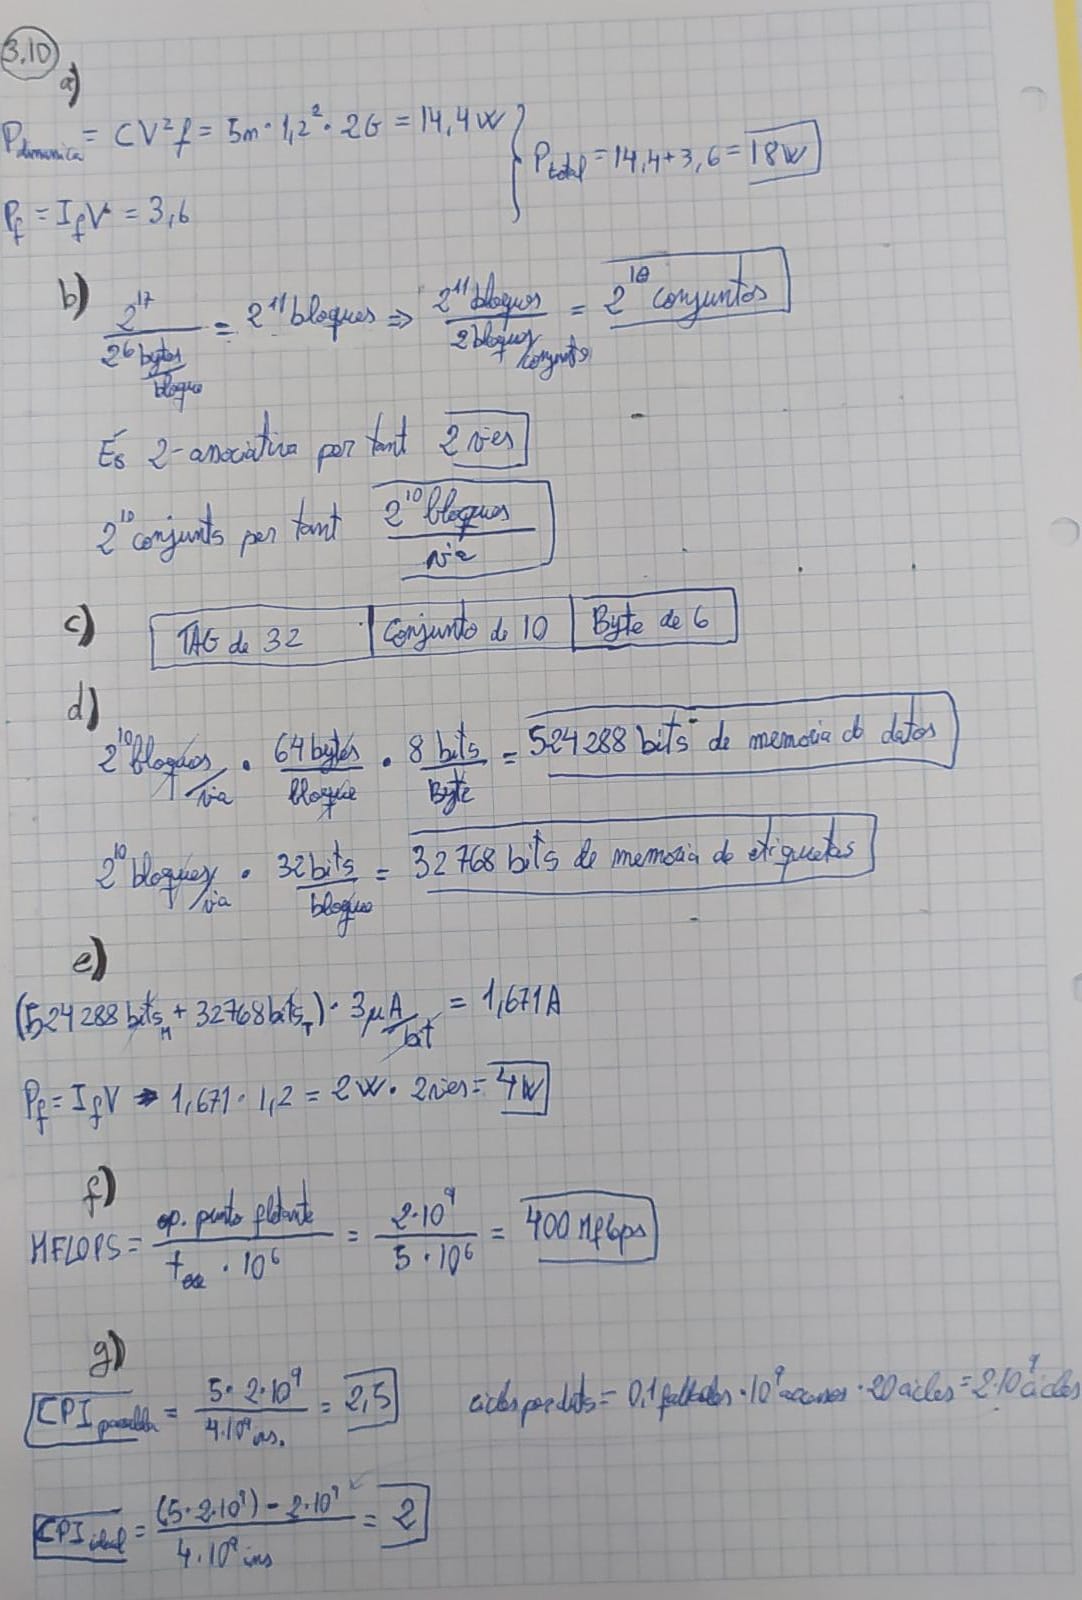 3.10
a)
P dinamica = CV²f = 5n · 1,2² · 2G = 14,4 W } P total = 14,4 + 3,6 = 18 W
P_f = I_f V = 3,6
b) 2¹⁷ / 2⁶ bytes/bloque = 2¹¹ bloques ⇒ 2¹¹ bloques / 2 bloques/conjunto = 2¹⁰ conjuntos
És 2-associativa per tant 2 vies
2¹⁰ conjunts per tant 2¹⁰ bloques / via
c) TAG de 32 | Conjunto de 10 | Byte de 6
d)
2¹⁰ bloques/via · 64 bytes/bloque · 8 bits/Byte = 524288 bits de memoria de datos
2¹⁰ bloques/via · 32 bits/bloque = 32768 bits de memoria de etiquetas
e)
(524288 bits_M + 32768 bits_T) · 3 μA/bit = 1,671 A
P_f = I_f V → 1,671 · 1,2 = 2 W · 2 vies = 4 W
f)
MFLOPS = op. punto flotante / t exe · 10⁶ = 2·10⁹ / 5·10⁶ = 400 Mflops
g)
CPI = 5 · 2·10⁹ / 4·10⁹ ins. = 2,5 ciclos = 0,1 · 10⁹ · 20 ciclos = 2·10⁹ ciclos
CPI ideal = (5·2·10⁹) - 2·10⁹ / 4·10⁹ ins = 2